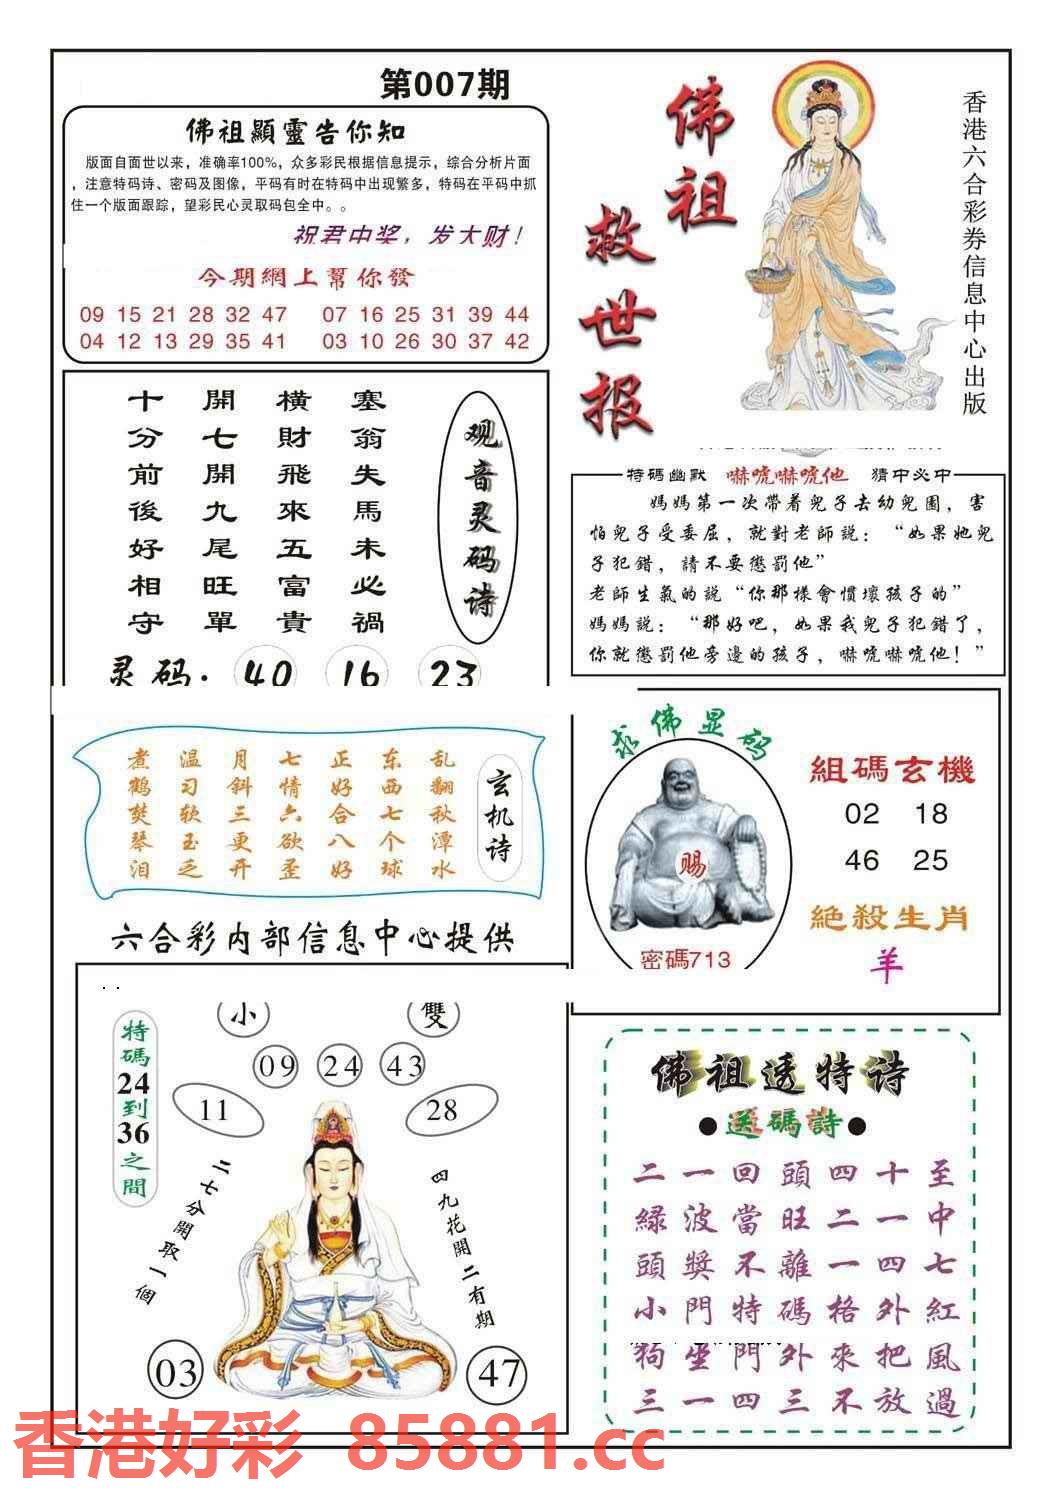 第007期
佛祖顯靈告你知
版面自面世以来，准确率100%，众多彩民根据信息提示，综合分析片面
，注意特码诗、密码及图像，平码有时在特码中出现繁多，特码在平码中抓
住一个版面跟踪，望彩民心灵取码包全中。。
祝君中奖，发大财！
今期網上幫你發
09 15 21 28 32 47 07 16 25 31 39 44
04 12 13 29 35 41 03 10 26 30 37 42
佛祖
救世报
香港六合彩券信息中心出版
观音灵码诗
塞翁失馬未必禍
橫財飛來五富貴
開七開九尾旺單
十分前後好相守
灵码: 40 16 23
特碼幽默 嚇唬嚇唬他 猜中必中
媽媽第一次帶着兒子去幼兒園，害
怕兒子受委屈，就對老師説：“如果她兒
子犯錯，請不要懲罰他”
老師生氣的説“你那樣會慣壞孩子的”
媽媽説：“那好吧，如果我兒子犯錯了，
你就懲罰他旁邊的孩子，嚇唬嚇唬他！”
玄机诗
乱翻秋潭水
东西七个球
正好合八好
七情六欲歪
月斜三更开
温习软玉乏
煮鹤焚琴泪
求佛显码
赐
密碼713
組碼玄機
02 18
46 25
絕殺生肖
羊
六合彩内部信息中心提供
小 雙
09 24 43
11 28
特碼24到36之間
二七分開取一個
四九花開二有期
03 47
佛祖透特诗
●送碼詩●
二一回頭四十至
緑波當旺二一中
頭獎不離一四七
小門特碼格外紅
狗坐門外來把風
三一四三不放過
香港好彩 85881.cc